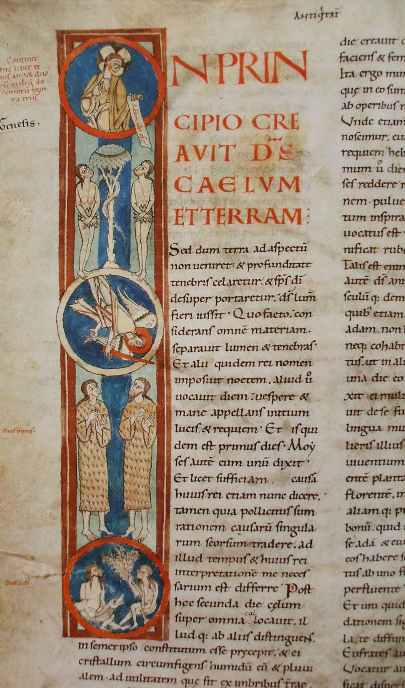 ANTIQITAT
Genesis.
IN PRIN
CIPIO CRE
AVIT DS
CAELUM
ET TERRAM:
Sed dum terra ad aspectu
non veniret. & profunditate
tenebris celaretur. & sps di
desuper portaretur. ds lum
fieri iussit. Quo facto. con
siderans omne materiam.
separavit lumen & tenebras
Et alii quidem rei nomen
imposuit noctem. aliud u
vocavit diem. vespere &
mane appellans initium
lucis & requiem. Et isqui
dem est primus dies. Moy
ses aute eum unu dixit.
Et licet sufficiam causa
huius rei etiam nunc dicere.
tamen quia pollicitus sum
rationem causaru singula
rum seorsum tradere. ad
illud tempus & huius rei
interpretatione me neces
sarium est differre. Post
hec secunda die celum
super omnia locavit. 
lud q; ab aliis distinguens.
in semetipso constitutum esse precepit. & ei
cristallum circumfigens humidu eu & pluvi
alem. ad utilitatem que fit ex umbribus
die creavit
faciens & fem
Ita ergo mun
que in eo sunt
ab operibus
Unde etiam
noscimur. cu
requiem heb
mum u diem
ses reddere
nem. pulve
tum inspira
vocatus est
nificat rube
Talis est enim
aute ds an
seculu q; dem
quib; etiam
adam. non
neq; cohabit
tus. ut in ali
una die
xit
ut dese
lingua
lieris illius
viventium
ente planta
florente. in
aliam q;
bonu. quid
se ada & eu
eos habere
tus ab uno
perfluente
Et unu quid
dationem
la. te diffun
Eufrates au
Vocatur au